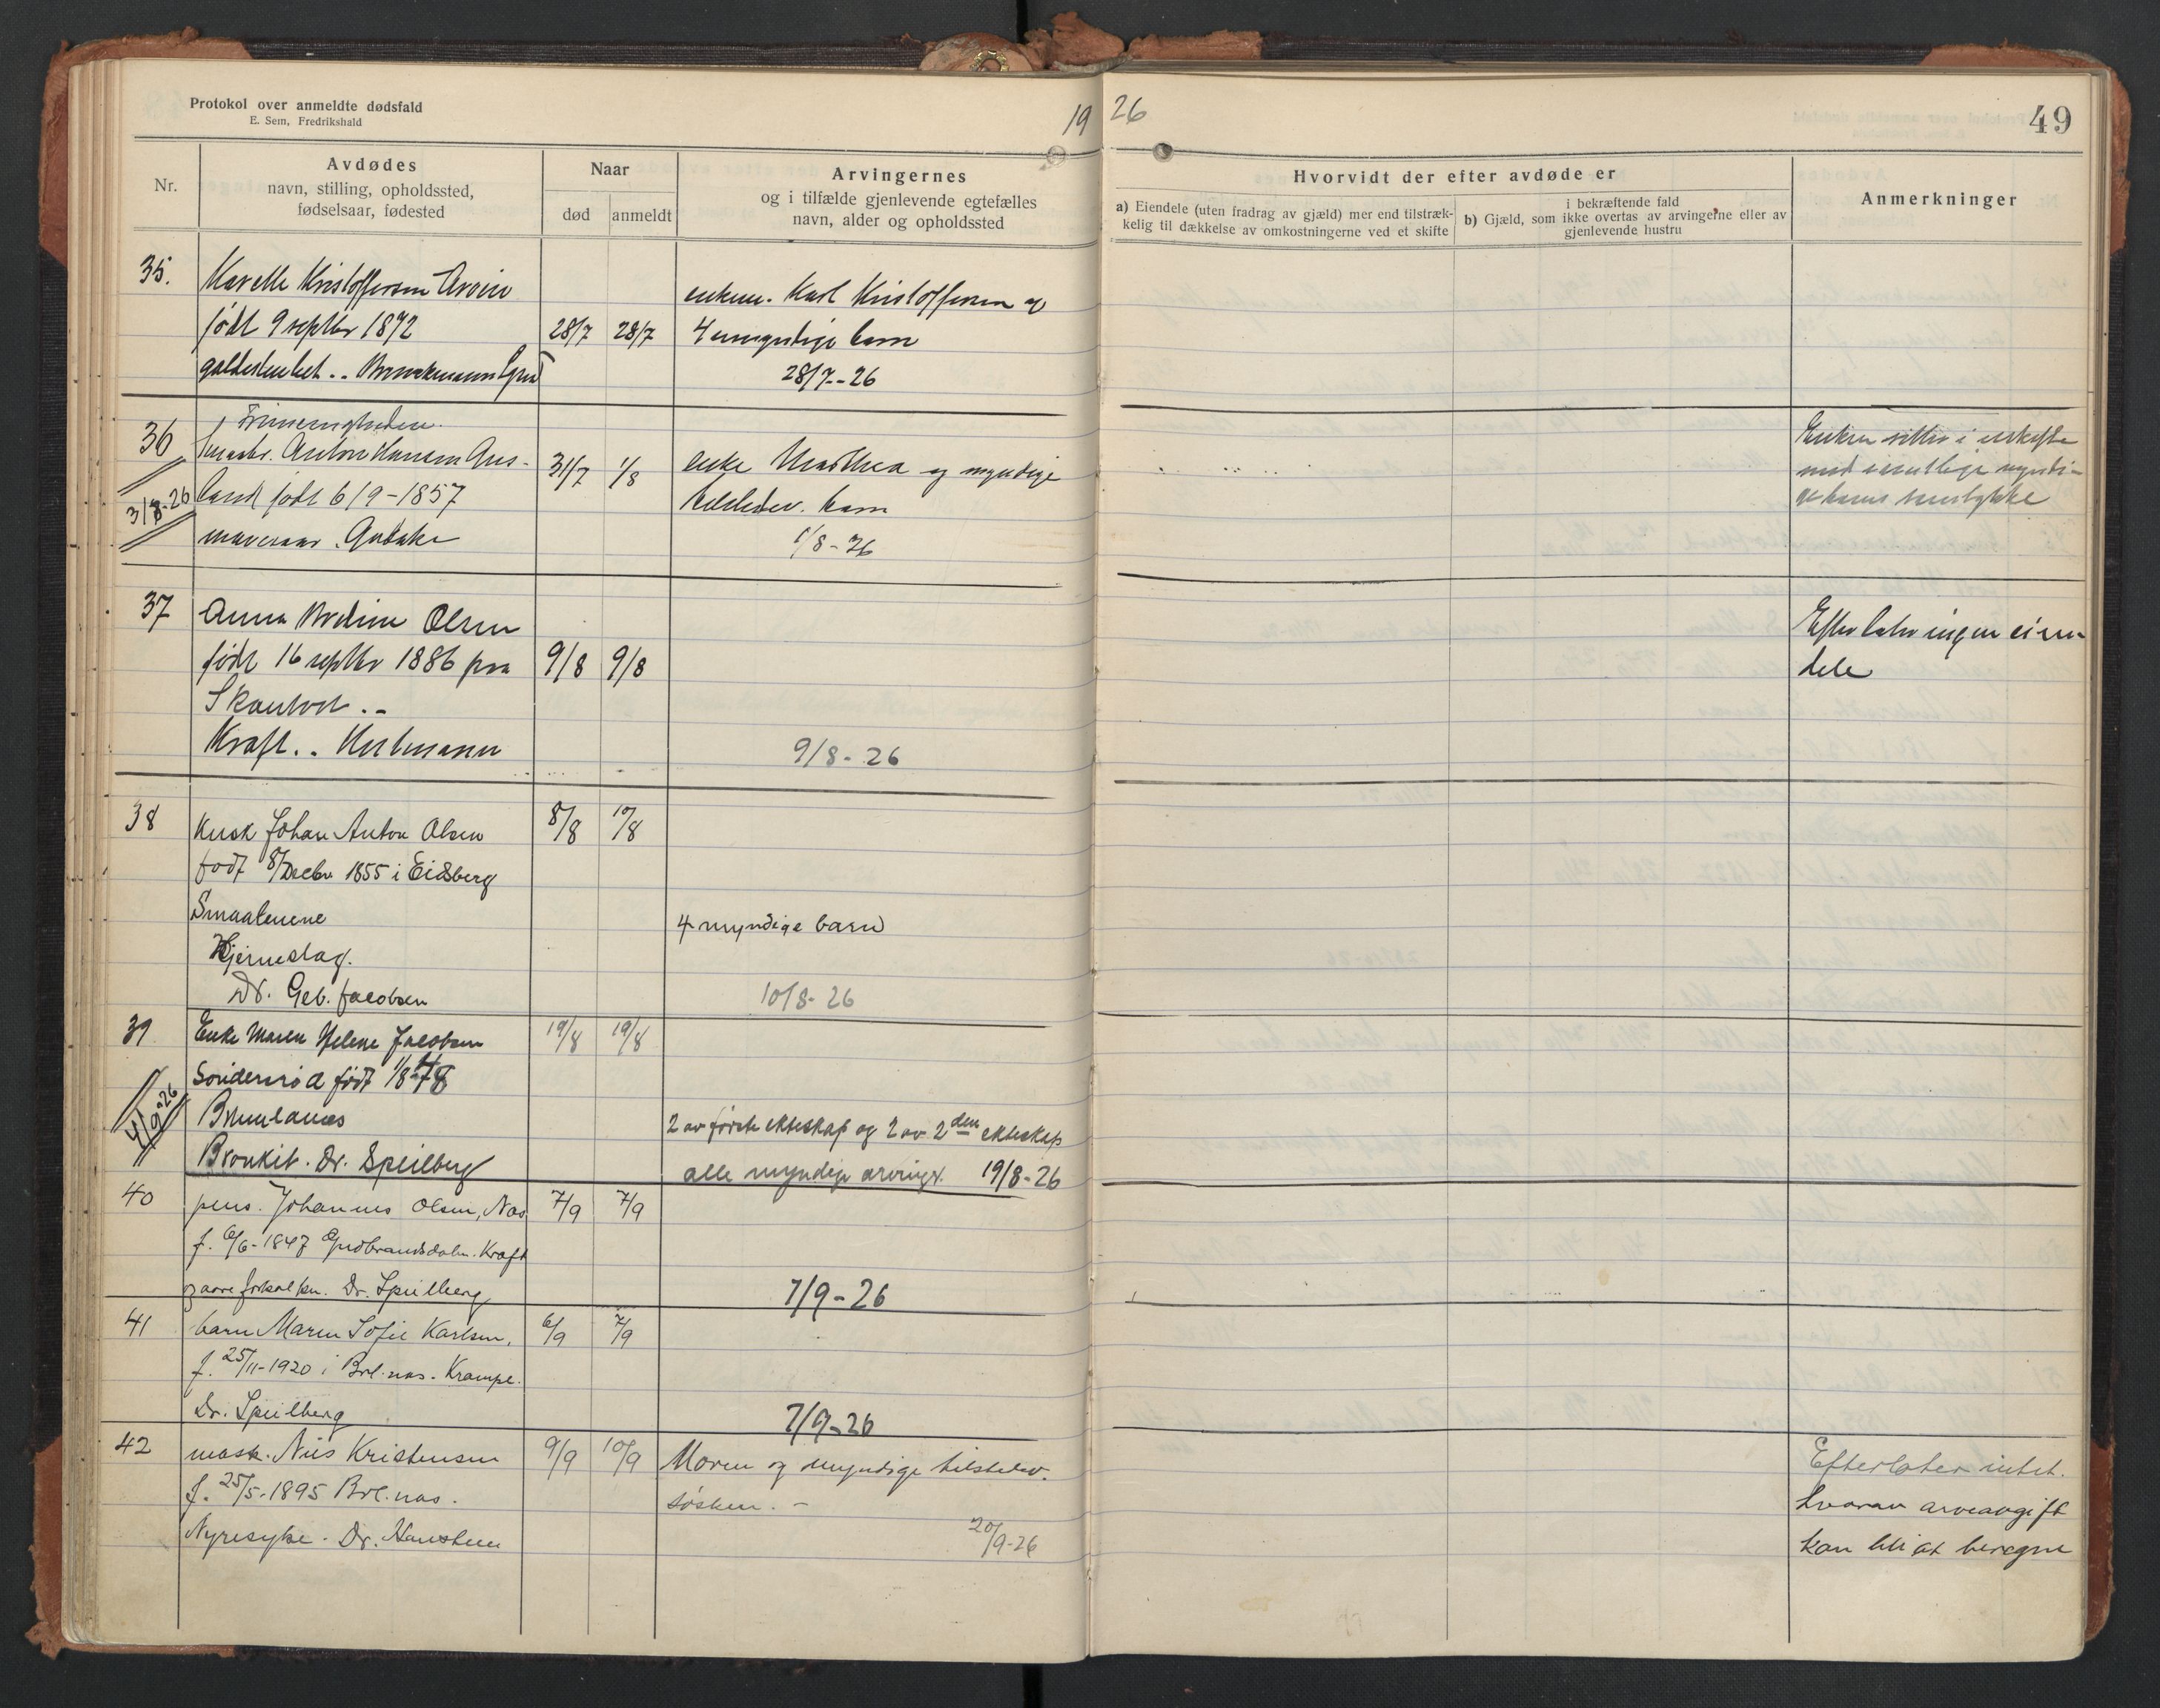 Protokol over anmeldte dødsfald
E. Sem, Fredrikshald
19 26
49
Nr.
Avdødes
navn, stilling, opholdssted,
fødselsaar, fødested
Naar
død
anmeldt
Arvingernes
og i tilfælde gjenlevende egtefælles
navn, alder og opholdssted
Hvorvidt der efter avdøde er
a) Eiendele (uten fradrag av gjæld) mer end tilstræk-
kelig til dækkelse av omkostningerne ved et skifte
i bekræftende fald
b) Gjæld, som ikke overtas av arvingerne eller av
gjenlevende hustru
Anmerkninger
35.
Kristoffersen
født 9 septbr 1872
28/7
28/7
Karl Kristoffersen og
4 barn
28/7-26
36
Anton Hansen
født 6/9-1857
3/8-26
31/7
1/8
enke og myndige
barn
1/8-26
Enken sitter i uskifte
med myndi-
ge barns samtykke
37
Anna Bodine Olsen
født 16 septbr 1886 paa
Kraft..
9/8
9/8
9/8-26
Efterlater ingen eien-
dele
38
Kusk Johan Anton Olsen
født 8/Decbr 1855 i Eidsberg
Smaalenene
Hjerneslag.
Dr. Geb. Jacobsen
8/8
10/8
4 myndige barn
10/8-26
39
Enke Maren Helene Jacobsen
født 1/8-48
Brunlanæs
Bronkit. Dr. Speilberg
4/9-26
19/8
19/8
2 av første ekteskap og 2 av 2den ekteskap
alle myndige arvinger. 19/8-26
40
pens. Johannes Olsen, Nas
f. 6/6-1847 Gudbrandsdalen. Kraft
Dr. Speilberg
7/9
7/9
7/9-26
41
barn Maren Sofie Karlsen,
f. 25/11-1920 i Brl.nas. Krampe.
Dr. Speilberg
6/9
7/9
7/9-26
42
mask. Nils Kristensen
f. 25/5-1895 Brl.nas.
Nyresyke. Dr.
9/9
10/9
Moren og myndige tilstedev.
søsken. -
20/9-26
Efterlater intet.
hvorav arveavgift
kan bli at beregne